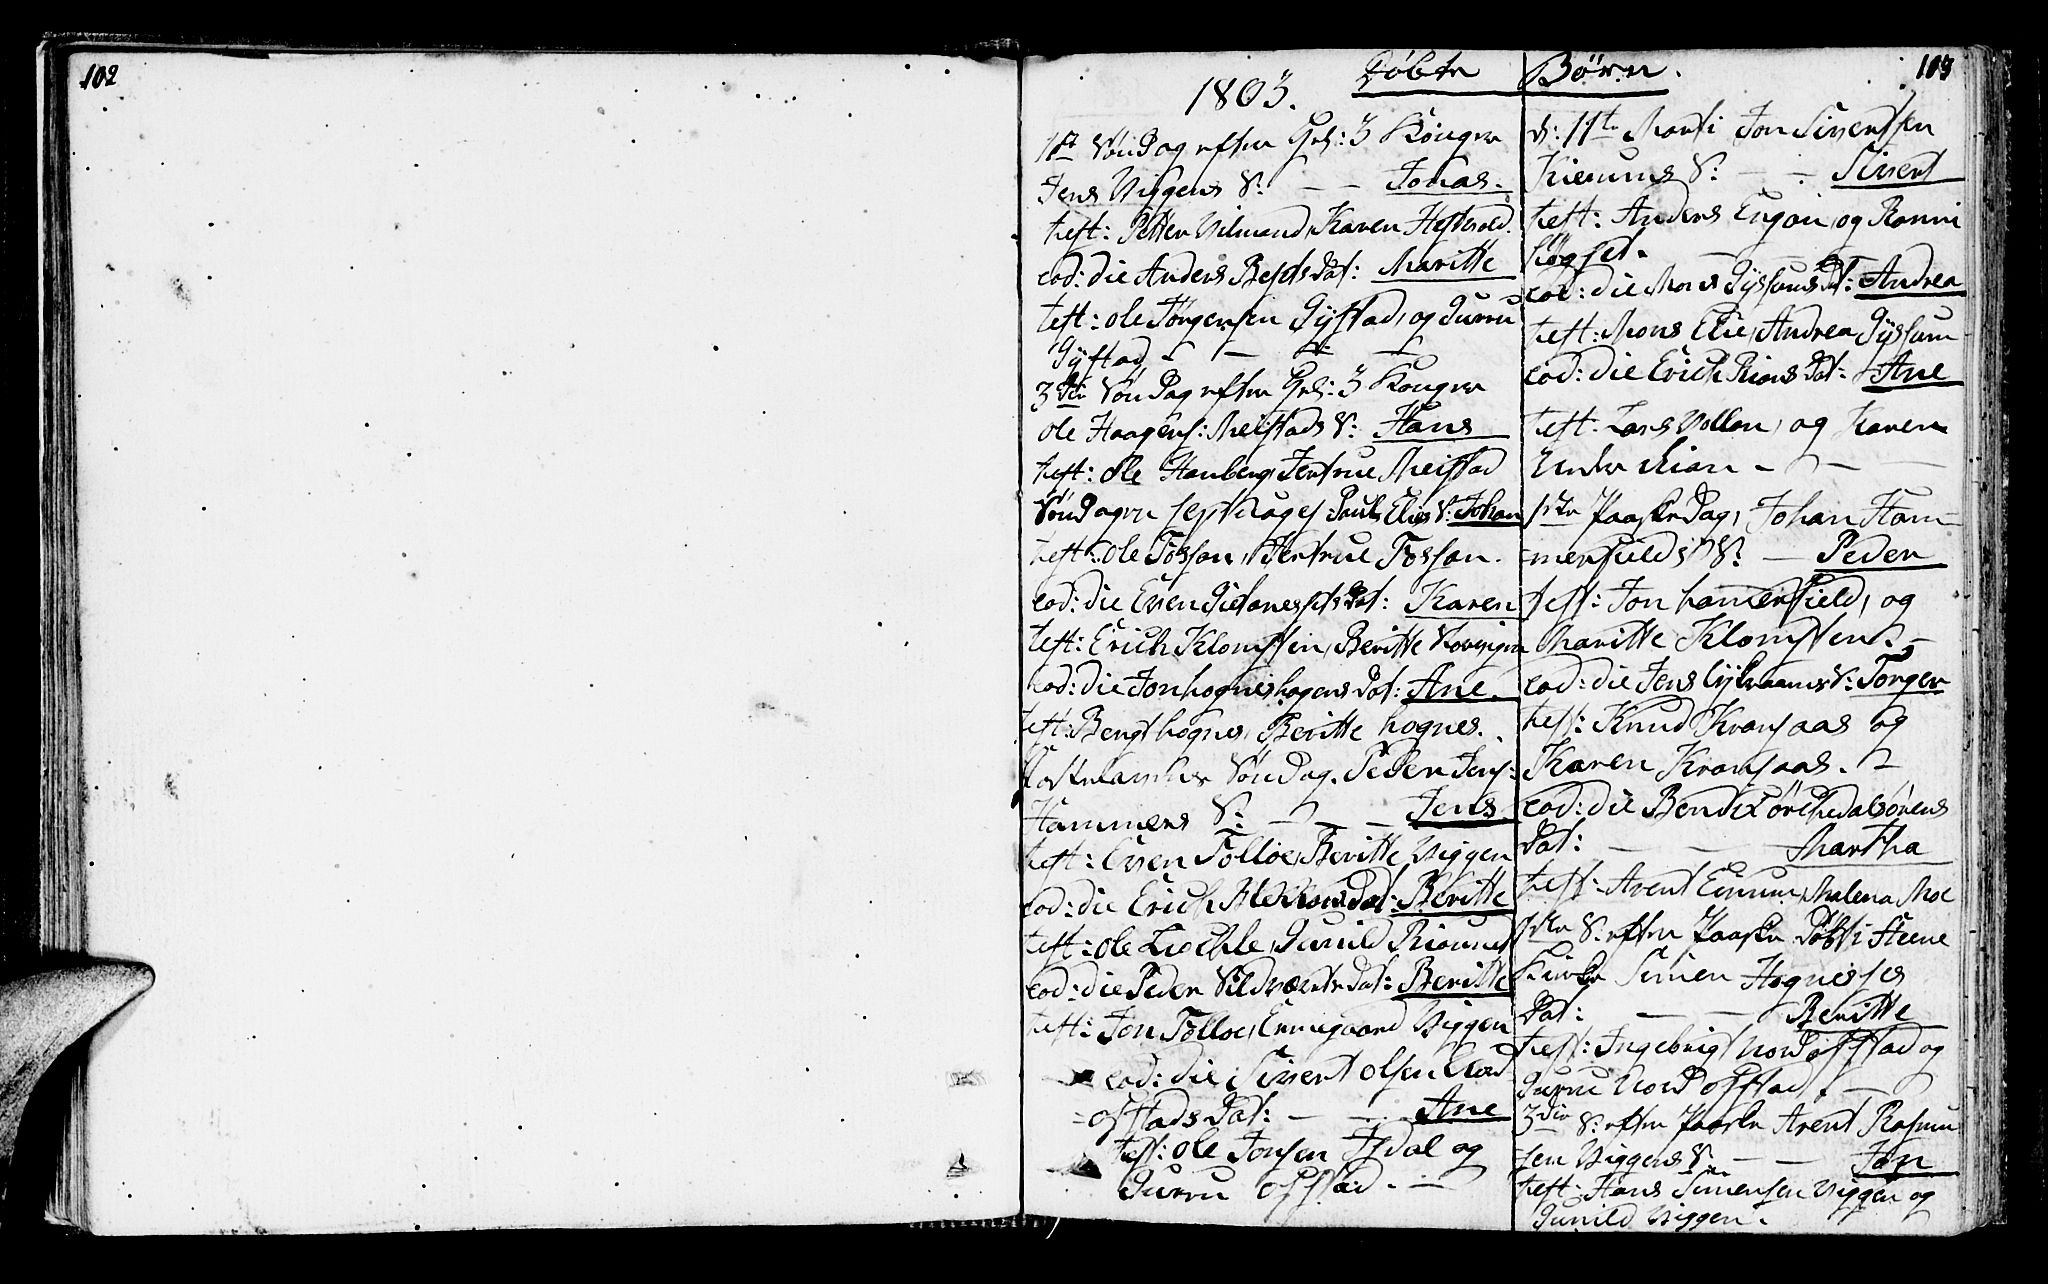 102
103
Döbte Börn.
1803.
1st Söndag efter Hel: 3 Konger
Jens Viggens S: — — Jonas.
test: Petter Vilmand, Karen Hestvold.
eod: die Anders Dat: Maritte
test: ole Törgersen Gÿstad, og Gurru
Gÿstad — — — —
3die Söndag efter Hel: 3 Konger
ole Haagens: Meistads S: Hans
test: ole Hanberg, Jertrue Meistad
Söndagen septuages: Paul Elies S: Johan
test: ole Fossan, Jertrue Fossan.
eod: die Even Dat: Karen
test: Erich Klomsten, Beritte
eod: die Jon hogneshagens Dat: Ane.
test: Bengt hognes, Beritte hognes.
Fastelaufns Söndag. Peder Jens:
Hammers S: — — — Jens
test: Even Tolloe, Beritte Viggen
eod: die Erich Dat: Beritte
test: ole Gunild
eod: die Peder Dat: Beritte
test: Jon Tolloe, Ermegaard Viggen
eod: die Sivert olsen Nord
=ofstads Dat: — — Ane
test: ole Jonsen Isdal og
Gurru ofstad. —
d: 11te Marti Jon Sivertsen
S: — — Sivert
test: Anders Engan, og Ranni
— —
eod: die Mons Gÿssums Dt: Andrea
test: Mons Elie, Andrea Gÿssum
eod: die Erich Rions Dat: Ane
test: Lars Vollan, og Karen
— — —
1ste Paaske Dag, Johan Ham=
=merfields S: — Peder
test: Jon hamerfield, og
Maritte Klomsten. —
eod: die Jens S: Torger
test: Knud Kransaas og
Karen Kransaas. —
eod: die
Dat: — — Martha
test: Arent Malena Moe
1ste S: efter Paaske Döbt i Steene
Kirke Simen
Dat: — — Beritte
test: Ingebrigt Nordofstad og
Gurru Nordofstad. —
3die S: efter Paaske Arent Rasmu
sen Viggens S. — — Jon
test: Hans Simensen Viggen og
Gunild Viggen.